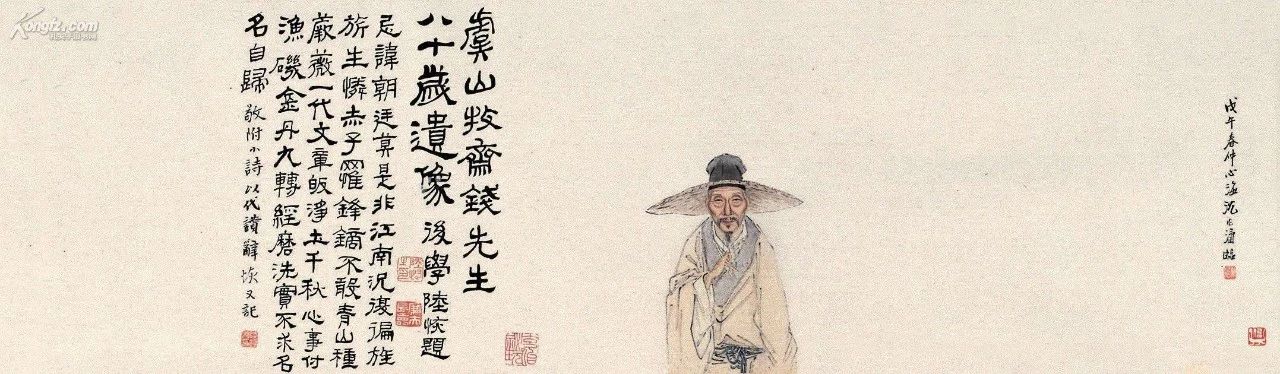 戊午春仲心海沈兆涵臨
虞山牧齋錢先生
八十歲遺像 後學陸恢題
忌諱朝廷莫是非江南況復徧旌
旂生憐赤子罹鋒鏑不敢青山種
蕨薇一代文章皈淨土千秋心事付
漁磯金丹九轉經磨洗實不求名
名自歸 敬附小詩以代讚辭 恢又記
Kongfz.com